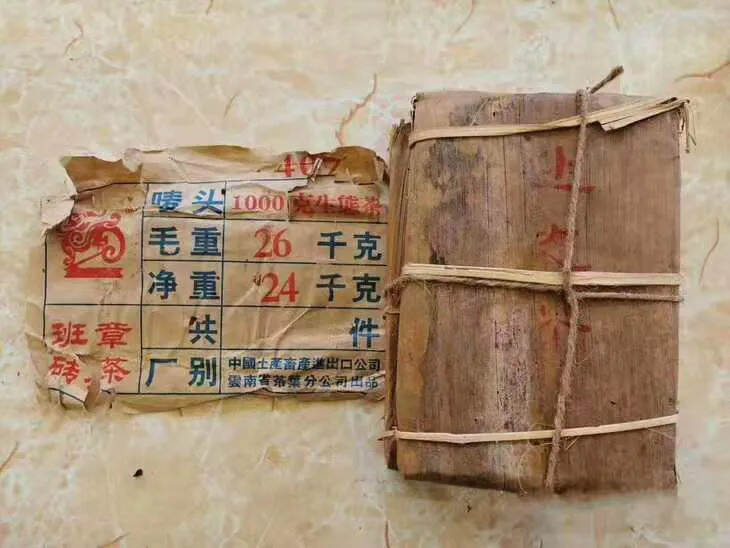 唛头 1000克生態茶
毛重 26 千克
净重 24 千克
共 件
班章
砖茶
厂别 中國土產畜產進出口公司
雲南省茶葉分公司出品
上